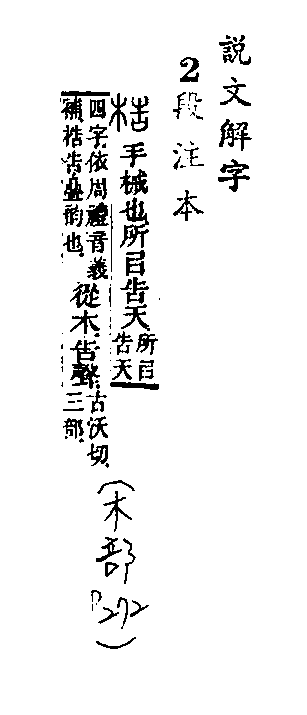 說文解字
2段注本
梏手械也所㠯告天所㠯告天
四字依周禮音義補梏告㬪韵也從木告聲古沃切三部
(木部P272)